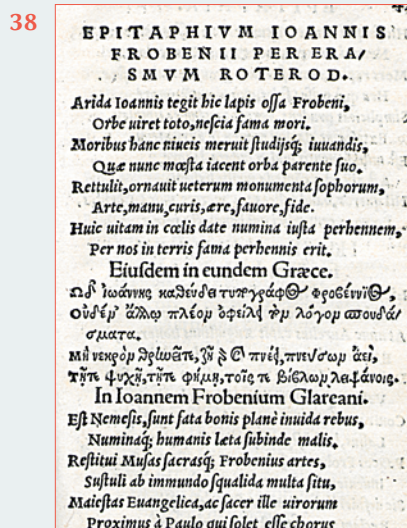 38
EPITAPHIVM IOANNIS
FROBENII PER ERA/
SMVM ROTEROD.
Arida Ioannis tegit hic lapis ossa Frobeni,
Orbe uiret toto, nescia fama mori.
Moribus hanc niueis meruit studijsq; iuuandis,
Quæ nunc mœsta iacent orba parente suo.
Rettulit, ornauit ueterum monumenta sophorum,
Arte, manu, curis, ære, fauore, fide.
Huic uitam in cœlis date numina iusta perhennem,
Per nos in terris fama perhennis erit.
Eiusdem in eundem Græce.
Ωδ᾽ Ἰωάννης καθεύδει τυπογράφος Φροβέννιος,
Οὐδέν᾽ ἄλλῳ πλέον ὀφείλει τῶν λόγων σπουδά/
σματα.
Μὴ νεκρὸν θρηνεῖτε, ζῇ
πνέει, πνεύσων ἀεὶ,
Τῇτε ψυχῇ, τῇτε φήμῃ, τοῖς τε βίβλων λειψάνοις.
In Ioannem Frobenium Glareani.
Est Nemesis, sunt fata bonis planè inuida rebus,
Numinaq; humanis leta subinde malis.
Restitui Musas sacrasq; Frobenius artes,
Sustuli ab immundo squalida multa situ,
Maiestas Euangelica, ac sacer ille uirorum
Proximus à Paulo qui solet esse chorus